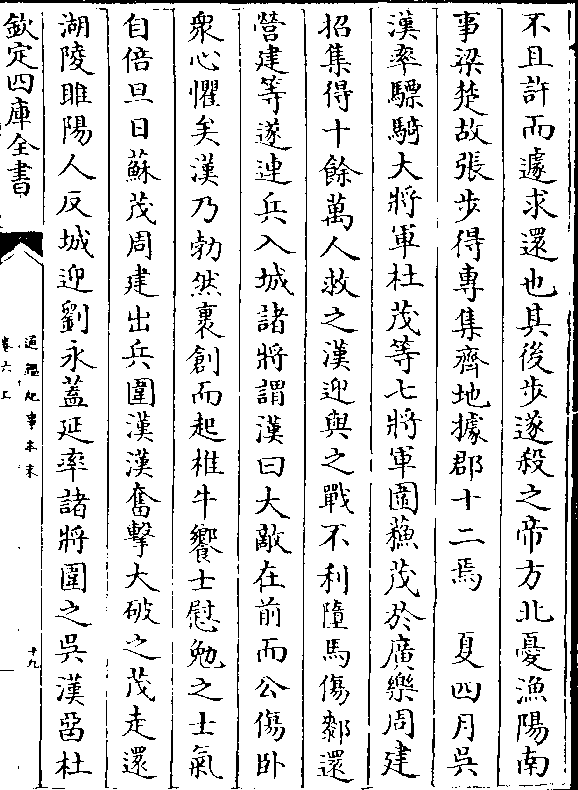 不且許而遽求還也其後步遂殺之帝方北憂漁陽南
事梁楚故張步得專集齊地據郡十二焉　夏四月吳
漢率驃騎大將軍杜茂等七將軍圍蘓茂於廣樂周建
招集得十餘萬人救之漢迎與之戰不利墮馬傷䣛還
營建等遂連兵入城諸將謂漢曰大敵在前而公傷卧
衆心懼矣漢乃勃然裹創而起椎牛饗士慰勉之士氣
自倍旦日蘇茂周建出兵圍漢漢奮擊大破之茂走還
湖陵睢陽人反城迎劉永蓋延率諸將圍之吳漢留杜
欽定四庫全書
通鑑紀事本末
卷六上
十九